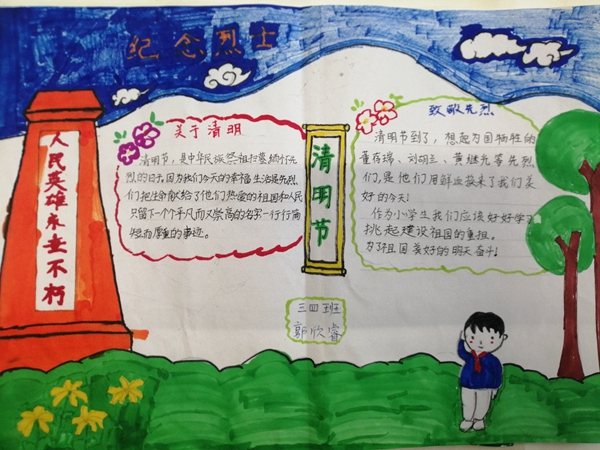 纪念烈士
人民英雄永垂不朽
关于清明
清明节，是中华民族祭祖扫墓缅怀先
烈的日子。因为我们今天的幸福生活是先烈
们把生命献给了他们热爱的祖国和人民
只留下一个个平凡而又崇高的名字一行行简
短而厚重的事迹。
清明节
致敬先烈
清明节到了，想起为国牺牲的
董存瑞、刘胡兰、黄继光等先烈
们，是他们用鲜血换来了我们美
好的今天！
作为小学生我们应该好好学习
挑起建设祖国的重担。
为了祖国美好的明天奋斗！
三四班
郭欣睿